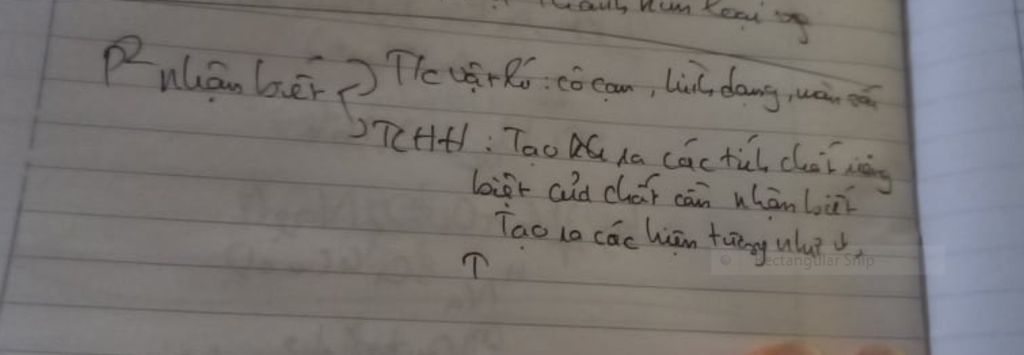 thành kim loại
P² nhận biết T/c vật lí : cô cạn, hình dạng, màu sắc
TCHH : Tạo ra các tính chất riêng
biệt của chất cần nhận biết
Tạo ra các hiện tượng như ↓,
↑
Rectangular Snip